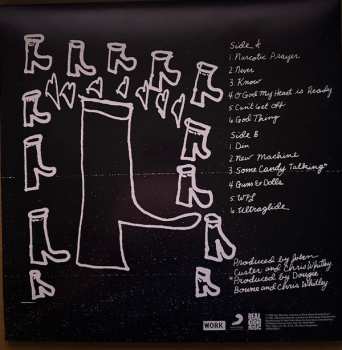 Side A
1. Narcotic Prayer
2. Never
3. Know
4. O God My Heart is Ready
5. Can't Get Off
6. God Thing
Side B
1. Din
2. New Machine
3. Some Candy Talking*
4. Guns & Dolls
5. WPL
6. Ultraglide
Produced by John
Custer and Chris Whitley
*Produced by Dougie
Bowne and Chris Whitley
WORK
REAL
GONE
MUSIC